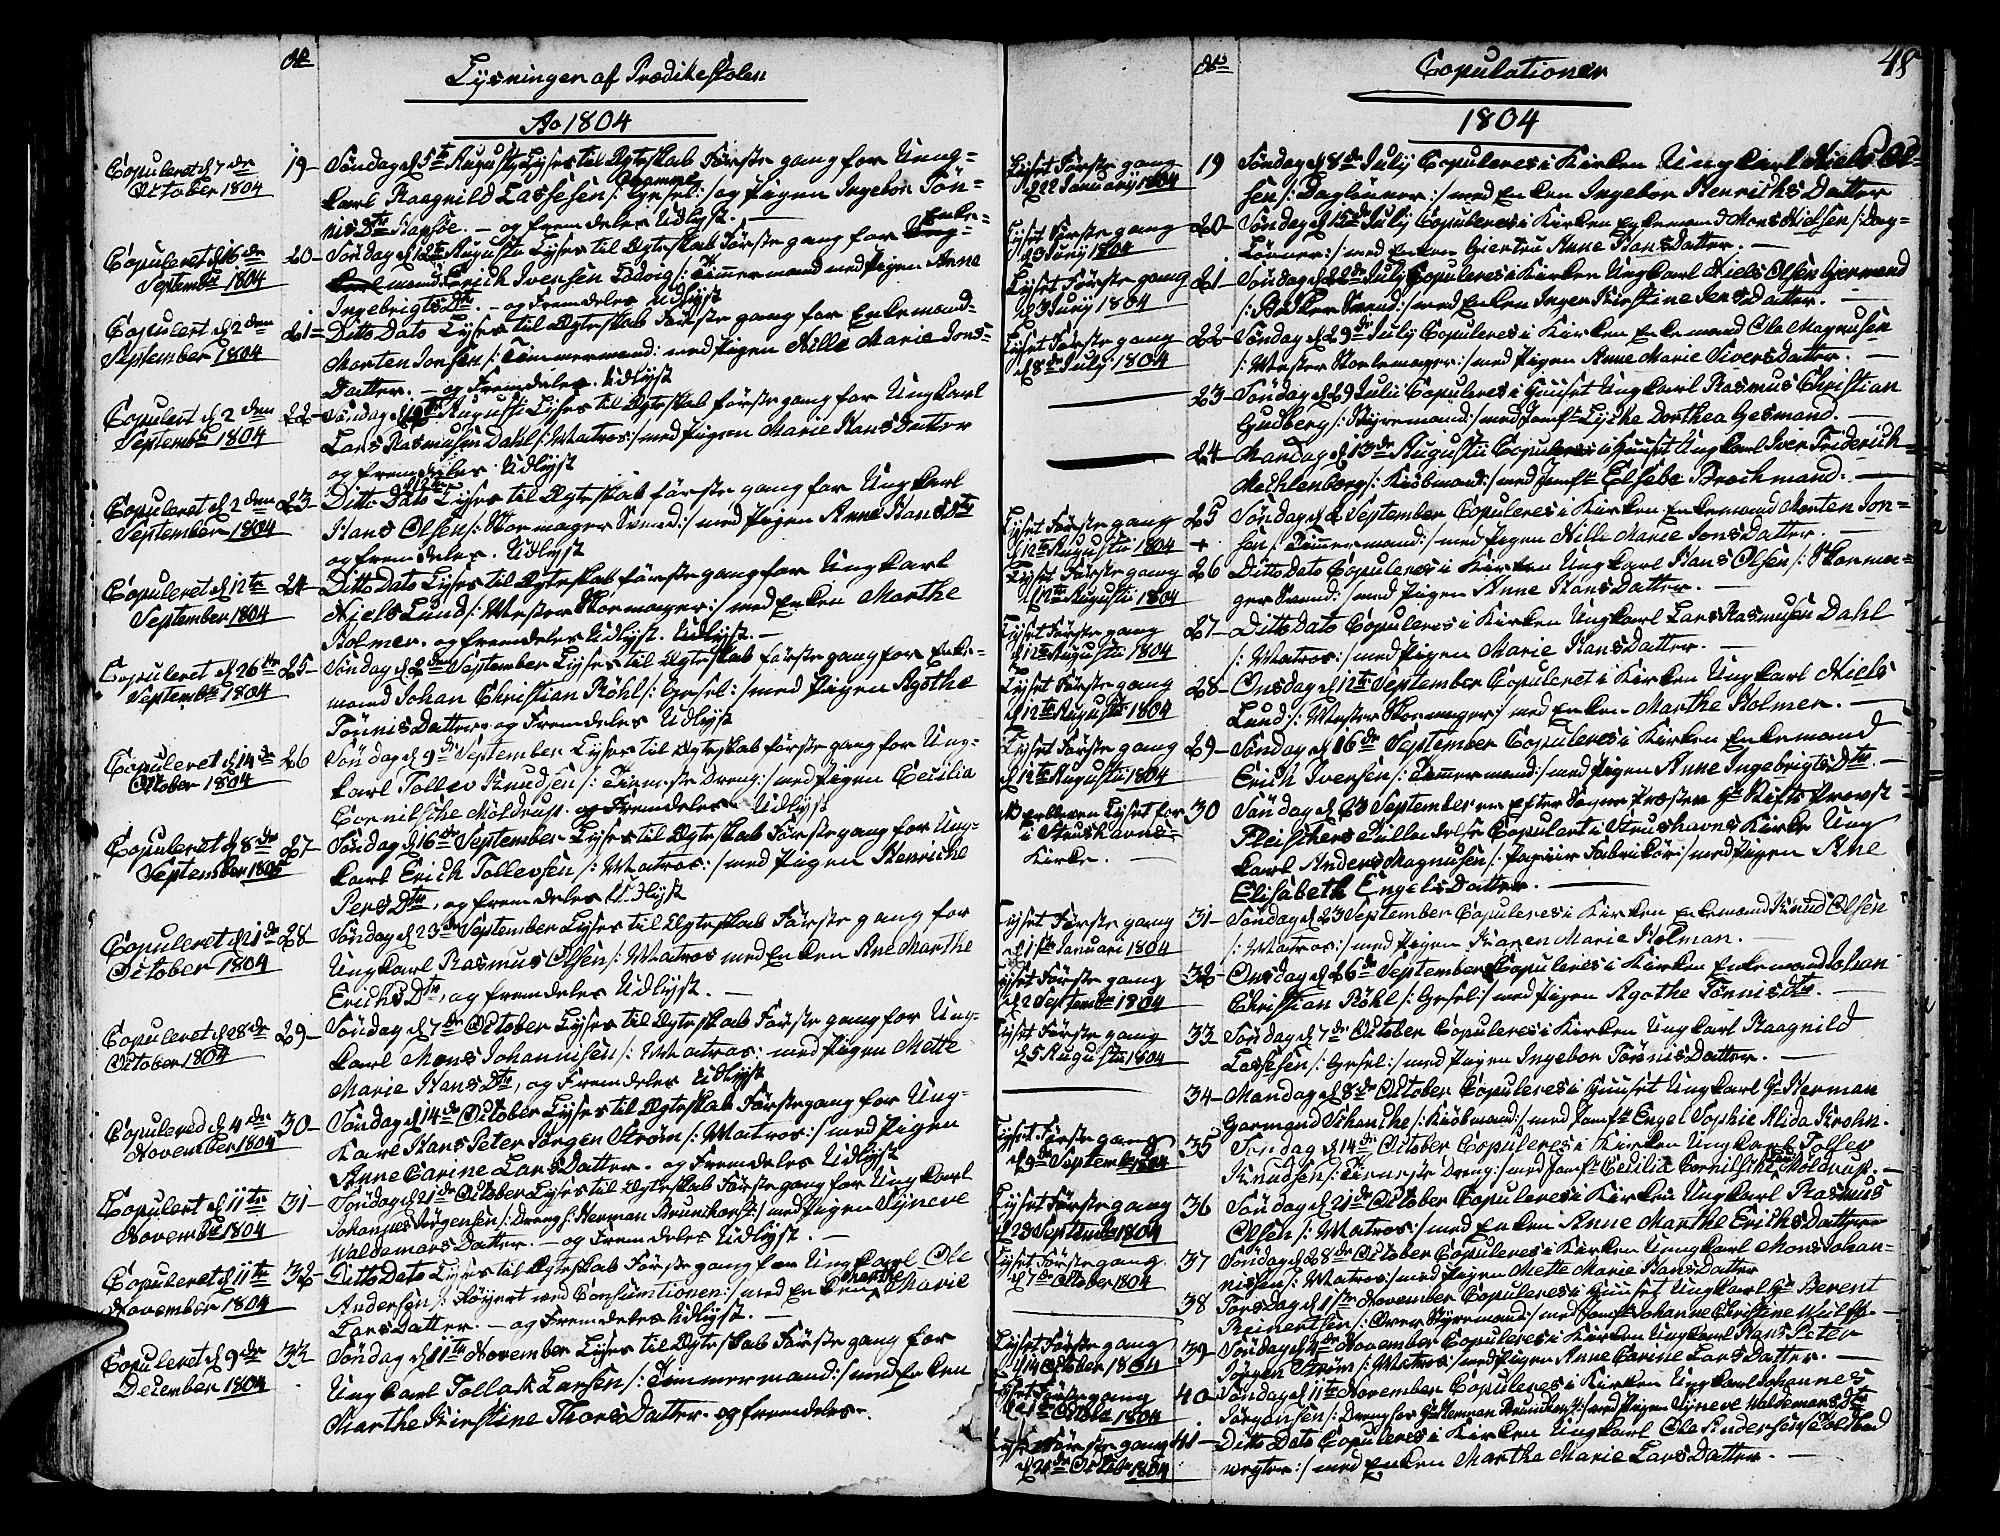 No
Lysningen af Prædikestolen
Ao 1804
Copuleret d 7de
October 1804
19- Søndag d 5te Augusty Lyses til Ægteskab Første gang for Ung-
karl Raagnild Lassesen /: Gesel :/ og Pigen Ingebor Tøn-
nis Dtr Kapsøe. - og fremdeles Udlyst. -
Copuleret d 16de
Septembr 1804
20- Søndag d 12te Augusty Lyses til Ægteskab Første gang for Enke-
mand Erich Ivensen /: Timmermand med Pigen Anne
Ingebrigts Dtr - og Fremdeles Udlyst
Copulert d 2den
September 1804
21- Ditto Dato Lyses til Ægteskab Første gang for Enkemand
Morten Jonsen /: Timmermand: med Pigen Nille Marie Jons-
Datter. - og Fremdeles. Udlyst
Copulert d 2den
Septembr 1804
22- Søndag d Augusti Lyses til Ægteskab første gang for Ungkarl
Lars Rasmusen Dahl /: Matros :/ med Pigen Marie Hans Datter
og fremdeles. Udlyst
Copuleret d 2den
September 1804
23- Ditto Dato Lyses til Ægteskab første gang for Ungkarl
Hans Olsen /: Skormager Svend :/ med Pigen Anne Hans Dtr
og fremdeles. Udlyst
Copuleret d 12te
September 1804
24- Ditto Dato Lyses til Ægteskab første gang for Ungkarl
Niels Lund /: Mester Skormager :/ med Enken Marthe
Holmer. og fremdeles Udlyst. Udlyst. -
Copuleret d 26te
Septembr 1804
25- Søndag d 2den September Lyses til Ægteskab første gang for Enke-
mand Johan Christian Röhl /: Gesel :/ med Pigen Agothe
Tønnis Datter og Fremdeles Udlyst
Copuleret d 14de
October 1804
26 Søndag d 9de September Lyses til Ægteskab første gang for Ung-
karl Tollev Knudsen /: Dreng :/ med Pigen Cecilia
Cornilsche Moldrup. og Fremdeles Udlyst
Copuleret d 8de
September 1805
27- Søndag d 16de September Lyses til Ægteskab Første gang for Ung-
karl Erich Tollevsen /: Matros :/ med Pigen Henriche
Pers Dtr, og fremdeles Udlyst
Copuleret d 21de
October 1804
28- Søndag d 23de September Lyses til Ægteskab Første gang for
Ungkarl Rasmus Olsen /: Matros med Enken Ane Marthe
Erichs Dtr, og fremdeles Udlyst. -
Copuleret d 28de
October 1804
29- Søndag d 7de October Lyses til Ægteskab Første gang for Ung-
karl Mons Johannisen /: Matros: med Pigen Mette
Marie Hans Dtr, og Fremdeles Udlyst
Copulered d 4de
November 1804
30- Søndag d 14de October Lyses til Ægteskab Første gang for Ung-
Karl Hans Peter Jørgen Strøm /: Matros :/ med Pigen
Anne Carine Lars Datter. og Fremdeles Udlyst
Copulert d 11te
Novembr 1804
31- Søndag d 21de October Lyses til Ægteskab Første gang for Ungkarl
Johannes Jørgensen /: Dreng Herman Brunchorst :/ med Pigen Synneve
Waldemars Datter. - og Fremdeles Udlyst. -
Copuleret d 11te
November 1804
32- Ditto Dato Lyses til Ægteskab Første gang for Ungkarl Ole
Andersen /: Røyert ved Consumtionen :/ med Enken Marthe Marie
Lars Datter. - og Fremdeles Udlyst
Copuleret d 9de
December 1804
33- Søndag d 11te November Lyses til Ægteskab Første gang for
Ungkarl Tollak Larsen /: Timmermand :/ med Enken
Marthe Kirstine Thores Datter og fremdeles.
No
Copulationer
48
1804
Lyset Første gang
d 22 January 1804
19 Søndag d 8de July Copuleres i Kirken Ungkarl Niels Ol-
sen /: Dagløner :/ med Enken Ingebor Henrichs Datter
Lyset Første gang
1804
20- Søndag d 15de July Copuleres i Kirken Enkemand Mons Nielsen /: Dag-
Lønner :/ med Enken Giertru Anne Hans Datter. -
Lyset Første gang
1804
21- Søndag d 22de July Copuleres i Kirken Ungkarl Niels Olsen Giermand
/: Bager Svend :/ med Enken Inger Kirstine Jens Datter. -
Lyset Første gang
d 8de July 1804
22- Søndag d 29de July Copuleres i Kirken Enkemand Ole Magnusen
/: Mester Skormager :/ med Pigen Anne Marie Sivers Datter. -
23- Søndag d 29 Julii Copuleres i Huuset Ungkarl Rasmus Christian
Gudberg /: Styremand :/ med Jomfr Lydke Dorthea Gesmand. -
24- Mandag d 13de Augusti Copuleres i Huuset Ungkarl Iver Friderich
Mechlenborg /: Kiøbmand :/ med Jomfr Elsebe Brochmand. -
Lyset Første gang
d 12te Augusti 1804
25 Søndag d 2 September Copuleres i Kirken Enkemand Morten Jon-
+ sen /: Timmermand :/ med Pigen Nille Marie Jons Datter. -
Lyset Første gang
d 12te Augusti 1804
26 Ditto Dato Copuleres i Kirken Ungkarl Hans Olsen /: Skorma-
ger Svend :/ med Pigen Anne Hans Datter. -
Lyset Første gang
d 12te Augusti 1804
27- Ditto Dato Copuleres i Kirken Ungkarl Lars Rasmusen Dahl
/: Matros :/ med Pigen Marie Hans Datter. -
Lyset Første gang
d 12te Augusti 1804
28- Onsdag d 12te September Copuleret i Kirken Ungkarl Niels
Lund /: Mester Skormager :/ med Enken Marthe Holmer. -
Lyset Første gang
d 12te Augusti 1804
29- Søndag d 16de September Copuleres i Kirken Enkemand
Erich Iversen /: Timmermand :/ med Pigen Anne Ingebrigts Dtr -
Lyset for
i Strushavns
Kirke. -
30 Søndag d 23 September en Efter Sogne Præsten Provst
Fleischers Tilladelse Copulert i Strushavns Kirke Ung
karl Anders Magnusen /: Papiir Fabrikør :/ med Pigen Ane
Elisabeth Engels Datter. -
Lyset Første gang
d 1ste Januari 1804
31- Søndag d 23 September Copuleres i Kirken Enkemand Knud Olsen
/: Matros :/ med Pigen Karen Marie Holman. -
Lyset Første gang
d 2 Septembr 1804
32- Onsdag d 26de September Copuleres i Kirken Enkemand Johan
Christian Röhl /: Gesel :/ med Pigen Agothe Tønnis Dtr. -
Lyset Første gang
d 5 Augusti 1804
33 Søndag d 7de October Copuleres i Kirken Ungkarl Raagnild
Lassesen /: Gesel :/ med Pigen Ingebor Tønnis Datter. -
34- Mandag d 8de October Copuleres i Huuset Ungkarl Hr Herman
Garmand Schanthe /: Kiøbmand :/ med Jomfr Engel Sophie Alida Krohn.
Lyset Første gang
d 9de Septembr 1804
35 Søndag d 14de October Copuleres i Kirken Ungkarl Tollev
Knudsen /: Dreng :/ med Jomfr Cecilia Cornilsche Moldrup. -
Lyset Første gang
d 23 Septembr 1804
36 Søndag d 21de October Copuleres i Kirken Ungkarl Rasmus
Olsen /: Matros :/ med Enken Anne Marthe Erichs Datter
Lyset Første gang
d 7de October 1804
37 Søndag d 28de October Copuleres i Kirken Ungkarl Mons Johan-
nissen /: Matros :/ med Pigen Mette Marie Hans Datter
38 Torsdag d November Copuleres i Huuset Ungkarl Hr Berent
Reinertsen /: Over Styremand :/ med Jomfr Johanne Christine Wulff. -
Lyset Første gang
d 14 October 1804
39- Søndag d 4de November Copuleres i Kirken Ungkarl Hans Peter
Jørgen Strøm /: Matros :/ med Pigen Anne Carine Lars Datter. -
Lyset Første gang
1804
40- Søndag d 11te November Copuleres i Kirken Ungkarl Johannes
Jørgensen /: Dreng hos Hr Herman Brunchorst :/ med Pigen Synneve Waldemars Dtr
Lyset Første gang
d 21de October 1804
41- Ditto Dato Copuleres i Kirken Ungkarl Ole Andersen
vegter :/ med Enken Marthe Marie Lars Datter. -